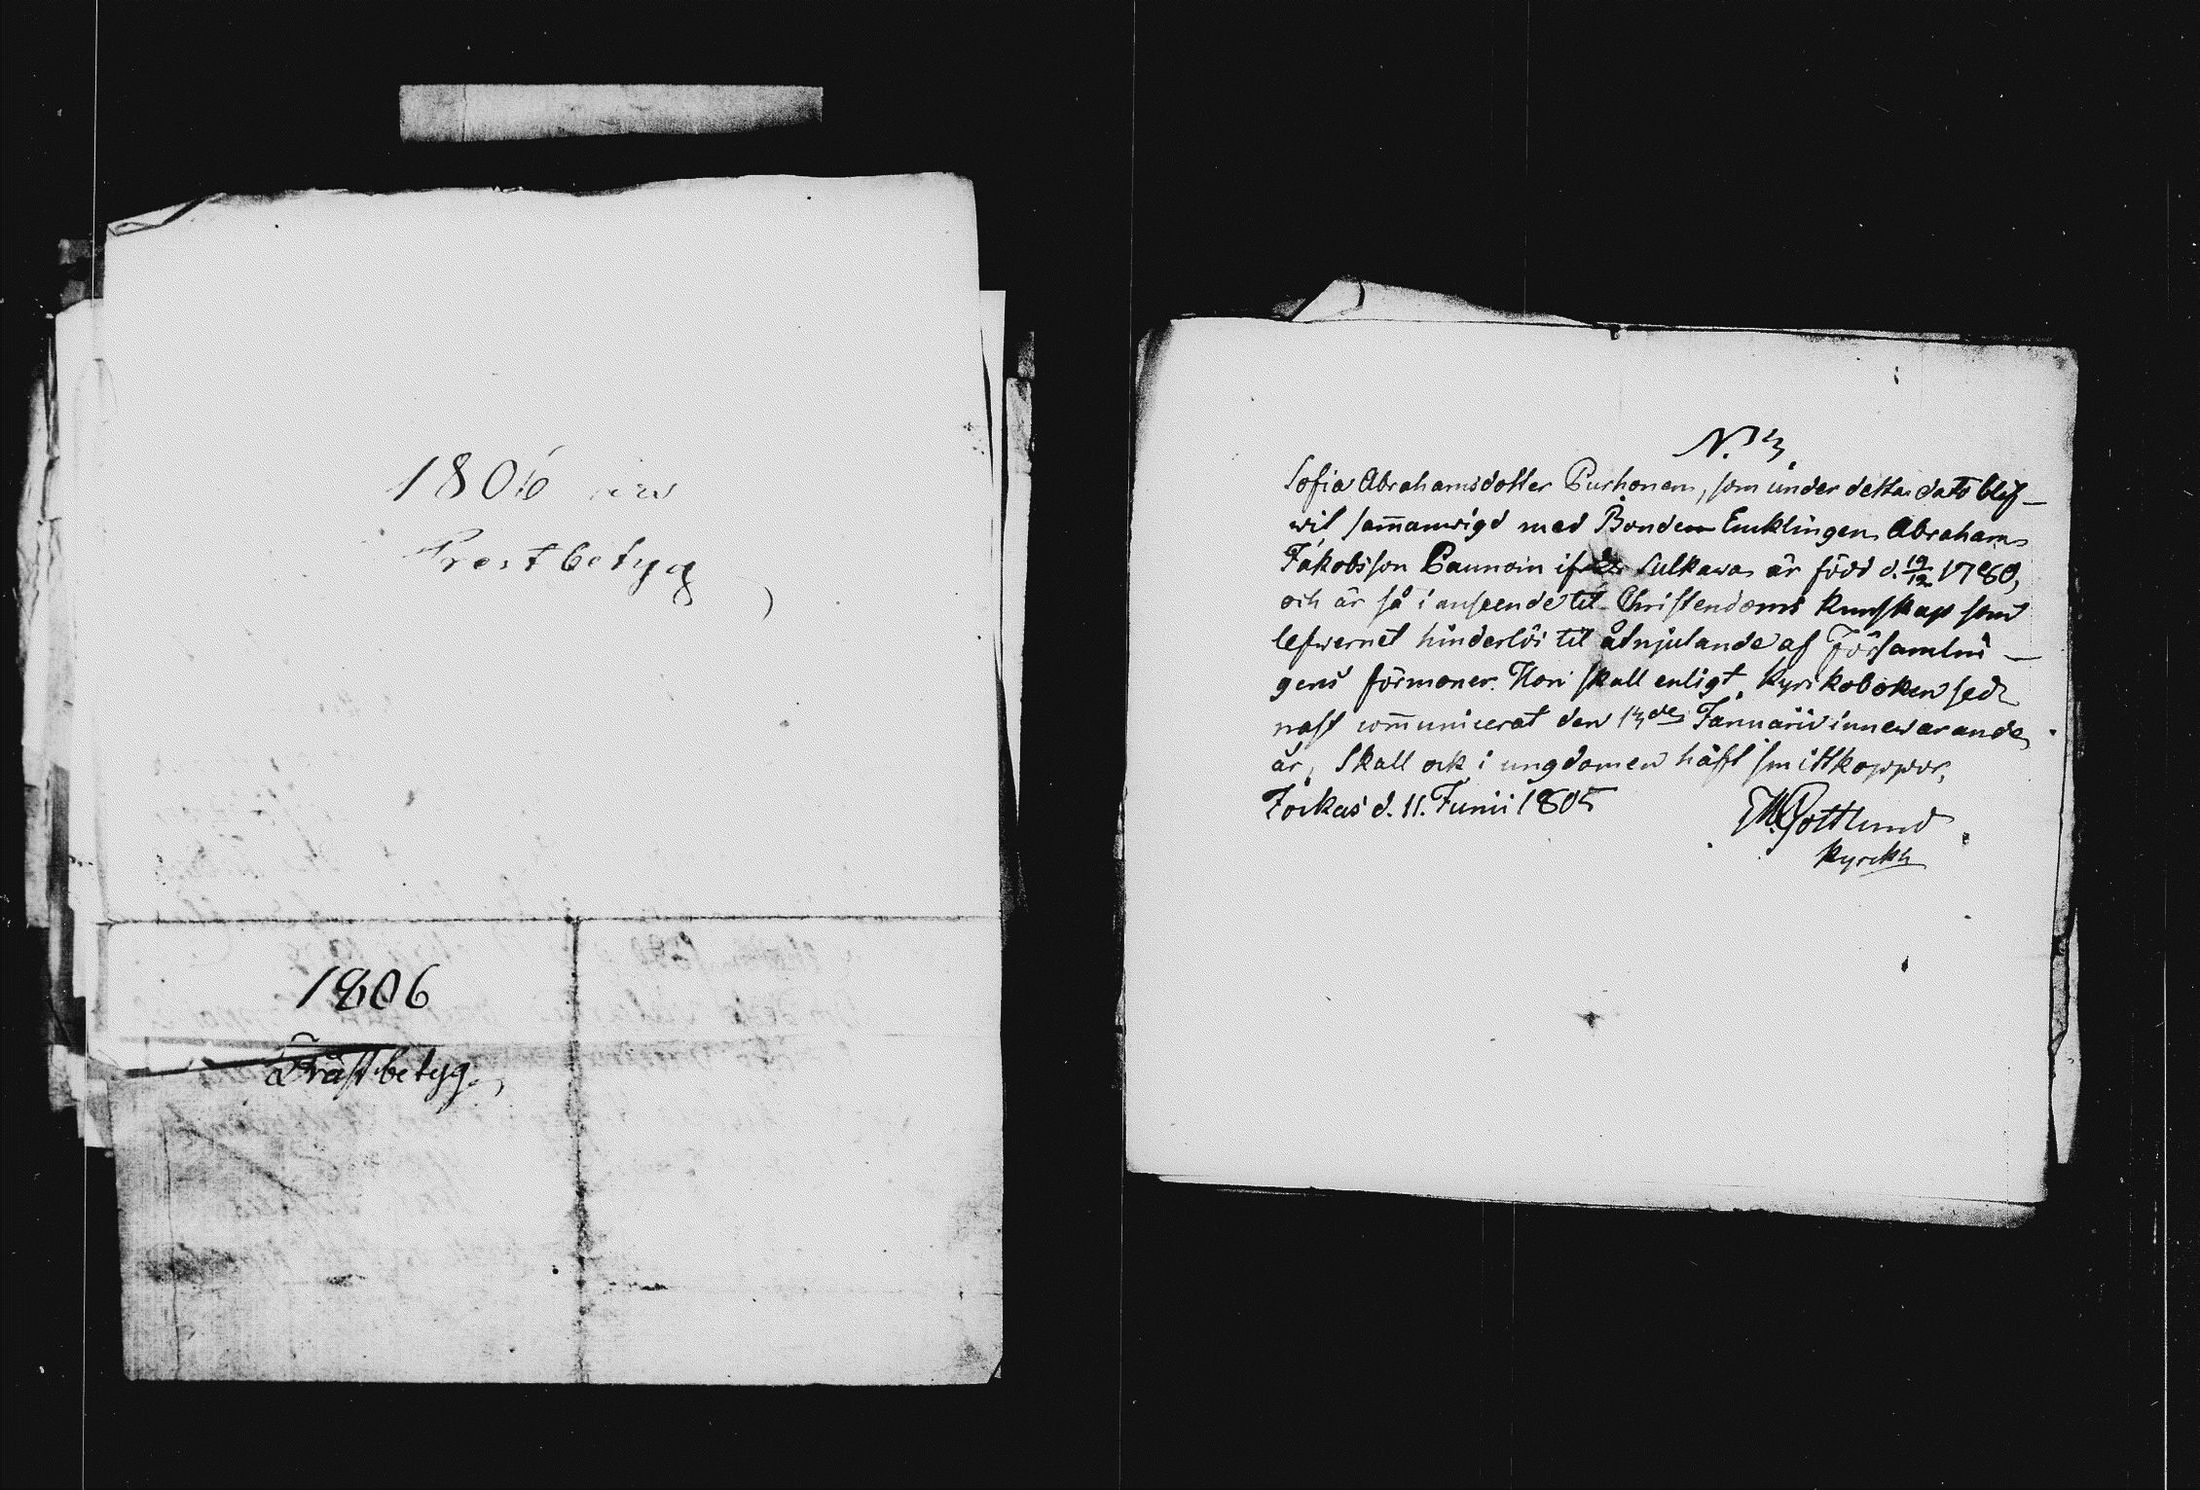 1806
Prestbetyg
1806
Prästbetyg.
N. 3
Sofia Abrahamsdotter Purhonen, som under detta dato blif-
wit sam̄anwigd med Bonde Enklingen Abraham
Jakobsson Paunoin ifrån Sulkawa är född d. 19/12 1780,
och är så i anseende til Christendoms kunskap som
lefwernet hinderlös til åtnjutande af Församlin-
gens förmoner. Hon skall enligt Kyrkoboken sed-
nast com̄unicerat den 13de Januarii innewarande
år, Skall ock i ungdomen häfft smittkoppor,
Jockas d. 11. Junii 1805
M. Gottlund
Kyrckh